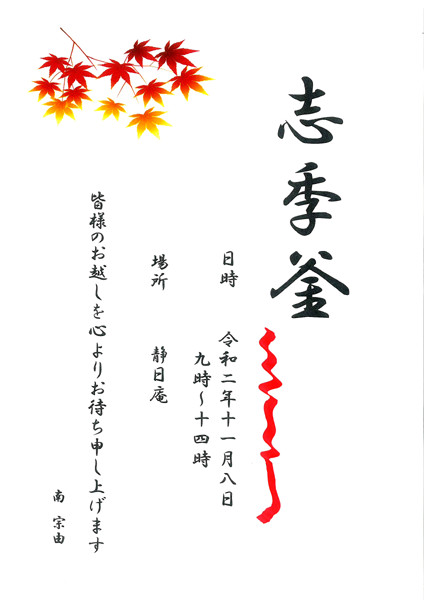 志季釜
日時 令和二年十一月八日
九時～十四時
場所 静日庵
皆様のお越しを心よりお待ち申し上げます
南 宗由